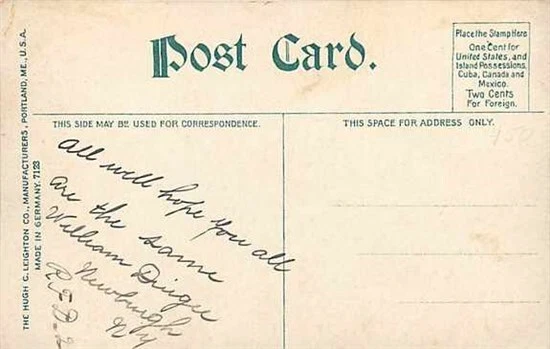 Post Card.
Place the Stamp Here
One Cent for
United States, and
Island Possessions,
Cuba, Canada and
Mexico.
Two Cents
For Foreign.
THIS SIDE MAY BE USED FOR CORRESPONDENCE.
THIS SPACE FOR ADDRESS ONLY.
150
THE HUGH C. LEIGHTON CO., MANUFACTURERS, PORTLAND, ME., U.S.A.
MADE IN GERMANY. 7123
all well hope you all
are the same
William Dingee
Newburgh
N Y